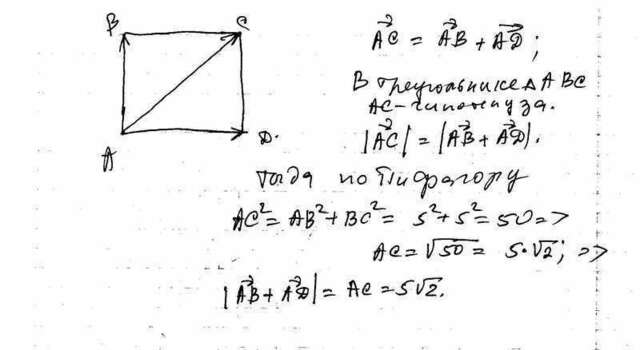 B C
A D.
AC⃗ = AB⃗ + AD⃗ ;
В треугольнике Δ ABC
AC - гипотенуза.
|AC⃗| = |AB⃗ + AD⃗|.
Тогда по Пифагору
AC² = AB² + BC² = 5² + 5² = 50 =>
AC = √50 = 5·√2; =>
|AB⃗ + AD⃗| = AC = 5√2.